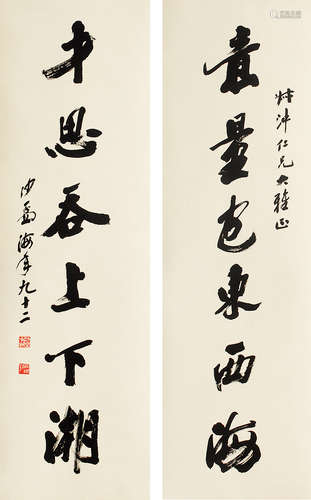 意量包東西海
仁兄大雅正
才思吞上下湖
沙孟海年九十二